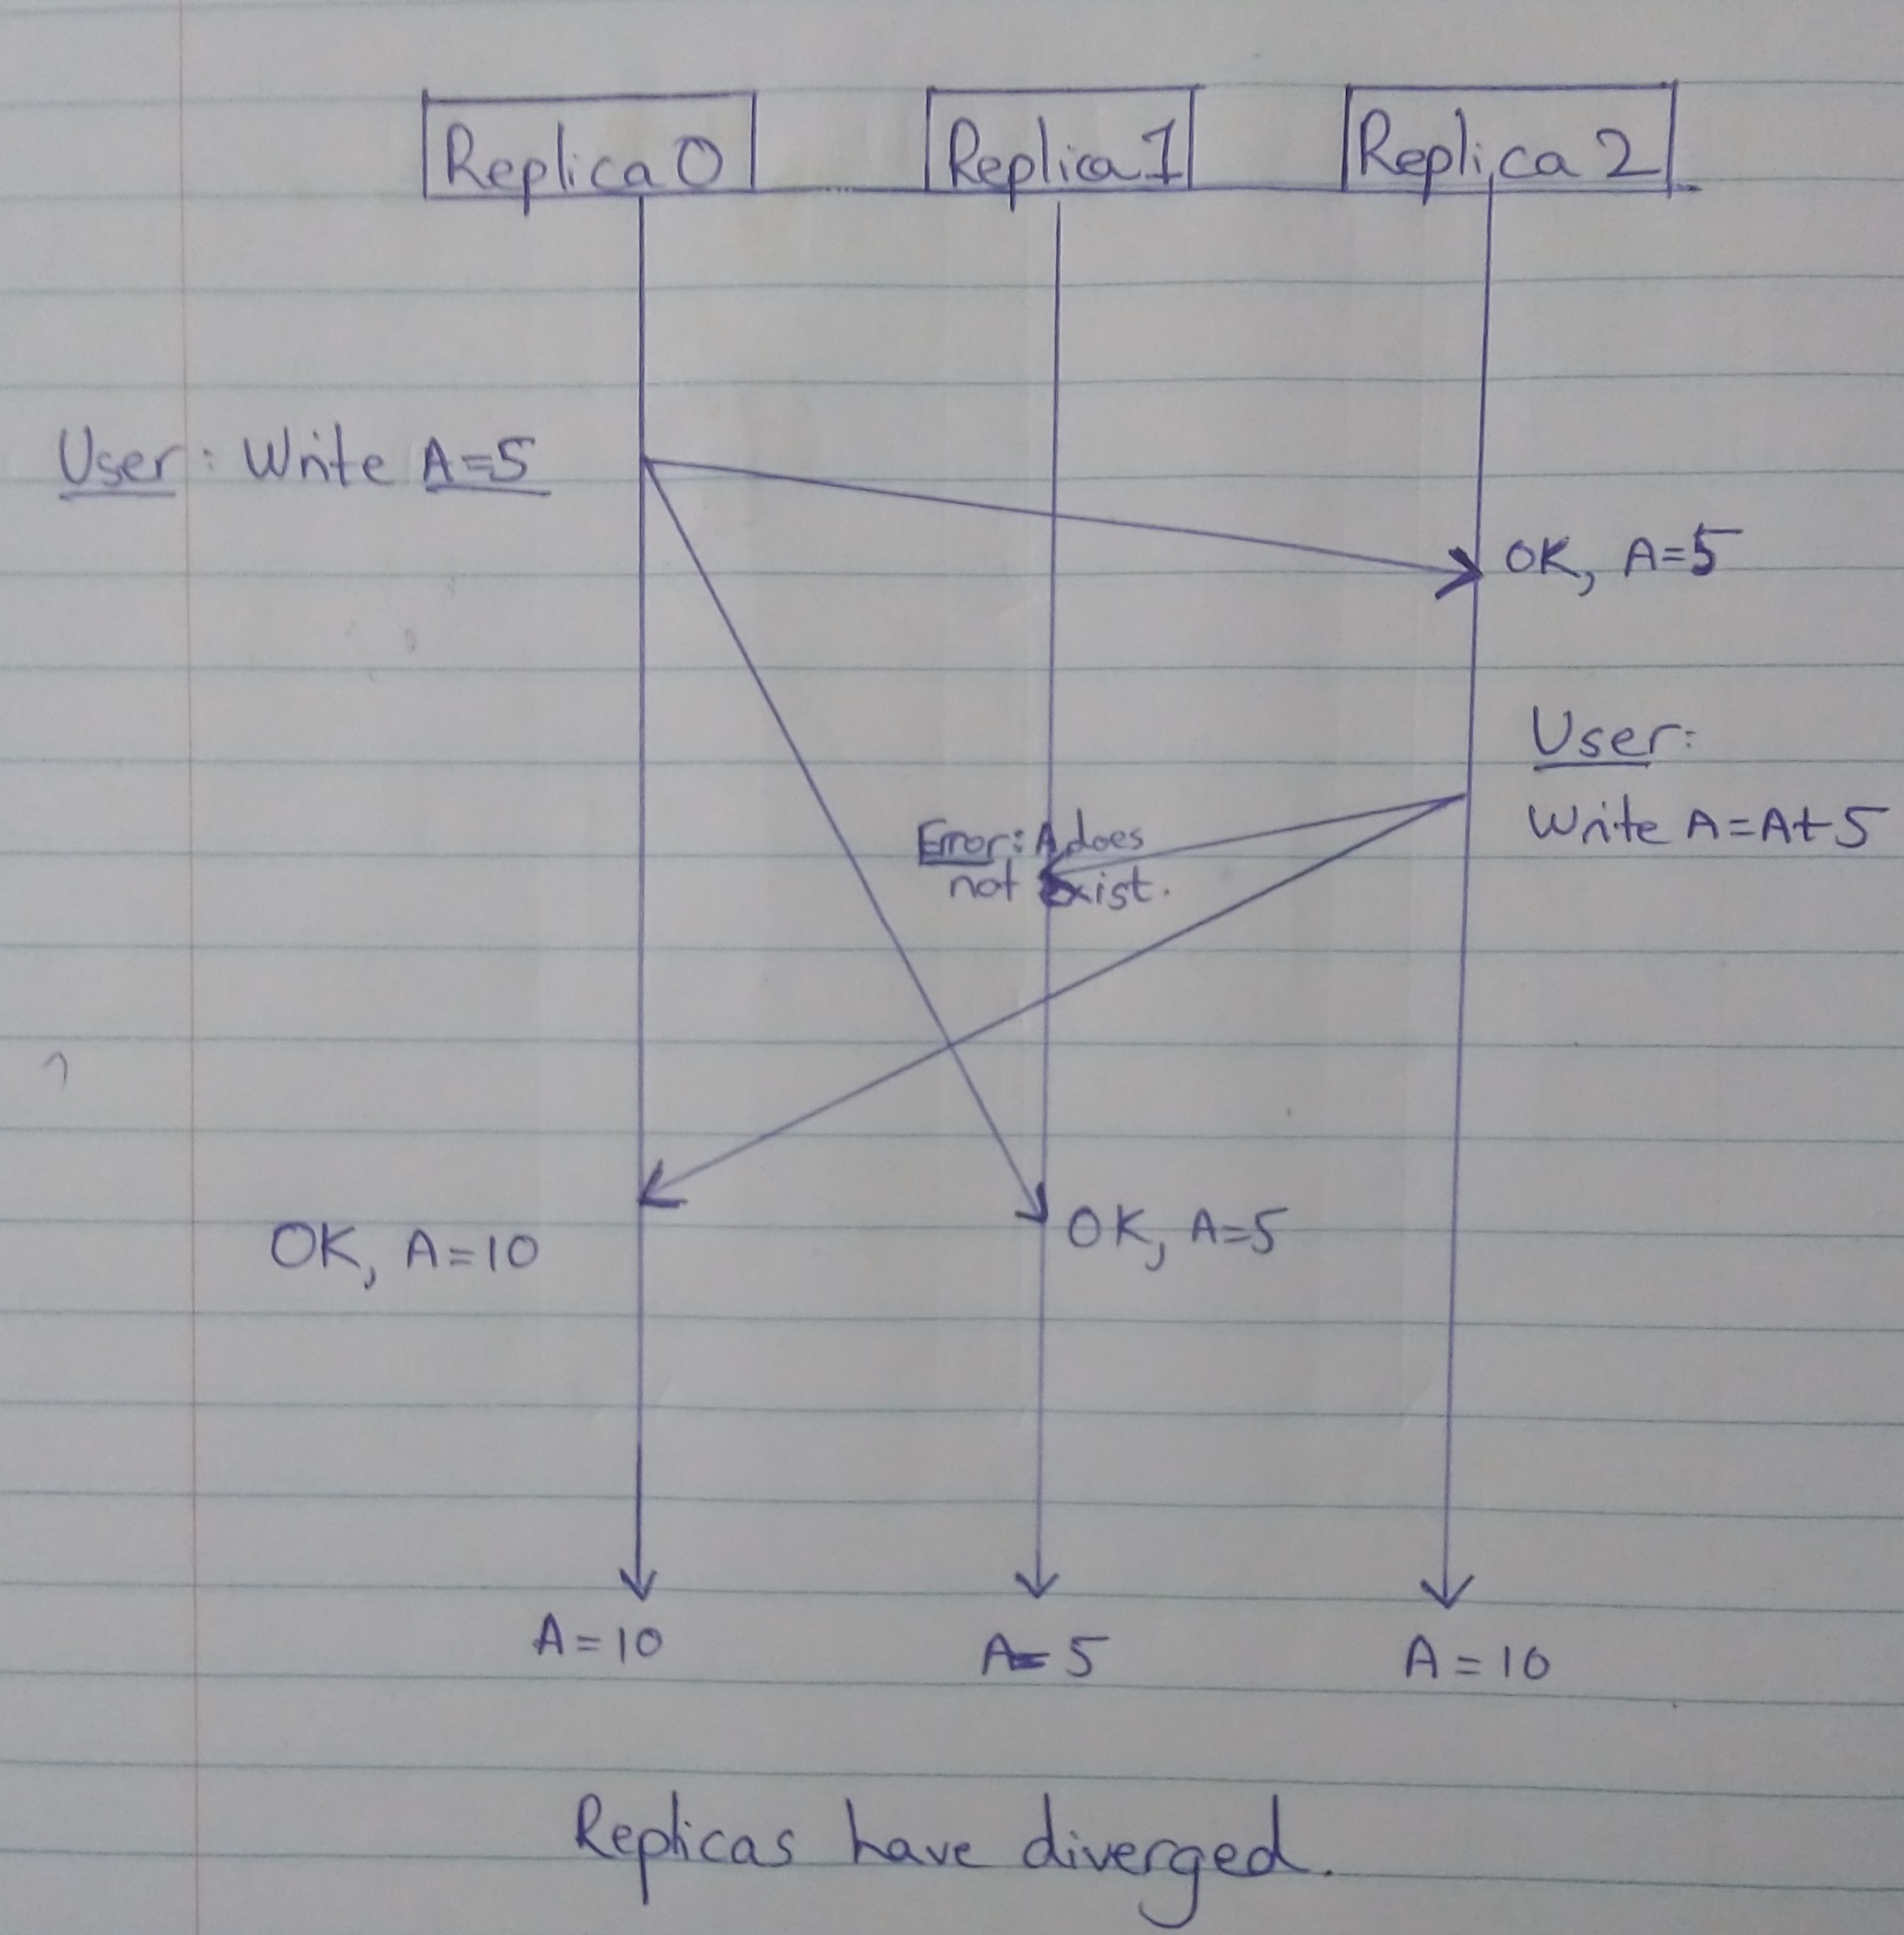 Replica 0
Replica 1
Replica 2
User: Write A=5
OK, A=5
User:
Write A=A+5
Error: A does
not exist.
OK, A=10
OK, A=5
A=10
A=5
A=10
Replicas have diverged.